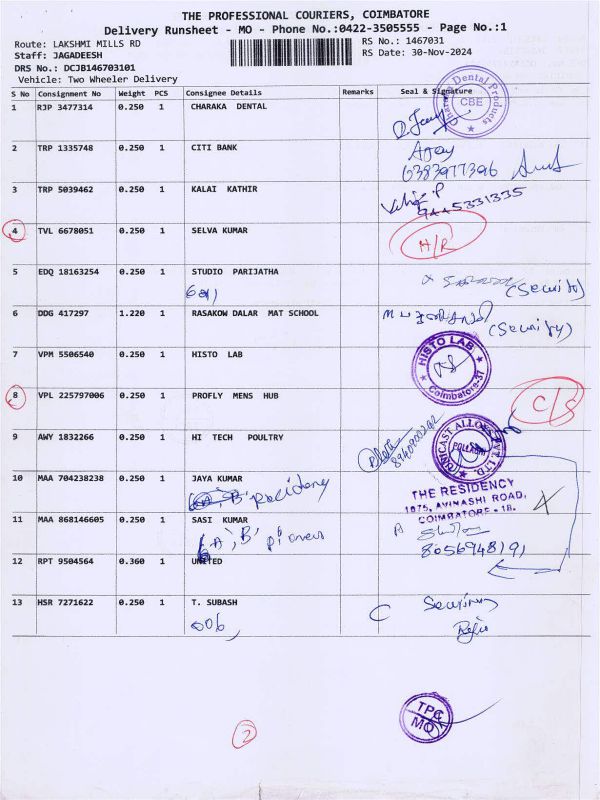 THE PROFESSIONAL COURIERS, COIMBATORE
Delivery Runsheet - MO - Phone No.:0422-3505555 - Page No.:1
Route: LAKSHMI MILLS RD
RS No.: 1467031
Staff: JAGADEESH
RS Date: 30-Nov-2024
DRS No.: DCJB146703101
Vehicle: Two Wheeler Delivery
S No Consignment No Weight PCS Consignee Details Remarks Seal & Signature
1 RJP 3477314 0.250 1 CHARAKA DENTAL
Dental Products
CBE
2 TRP 1335748 0.250 1 CITI BANK
Ajay
6383977396
3 TRP 5039462 0.250 1 KALAI KATHIR
9445331335
4 TVL 6678051 0.250 1 SELVA KUMAR
H/R
5 EDQ 18163254 0.250 1 STUDIO PARIJATHA
(Security)
6 DDG 417297 1.220 1 RASAKOW DALAR MAT SCHOOL
(Security)
7 VPM 5506540 0.250 1 HISTO LAB
HISTO LAB
Coimbatore-37
8 VPL 225797006 0.250 1 PROFLY MENS HUB
C/S
9 AWY 1832266 0.250 1 HI TECH POULTRY
UNICAST ALLOYS PVT. LTD.
10 MAA 704238238 0.250 1 JAYA KUMAR
THE RESIDENCY
1076, AVINASHI ROAD,
COIMBATORE - 18.
11 MAA 868146605 0.250 1 SASI KUMAR
8056948191
12 RPT 9504564 0.360 1 UNITED
13 HSR 7271622 0.250 1 T. SUBASH
TPC
MO
2